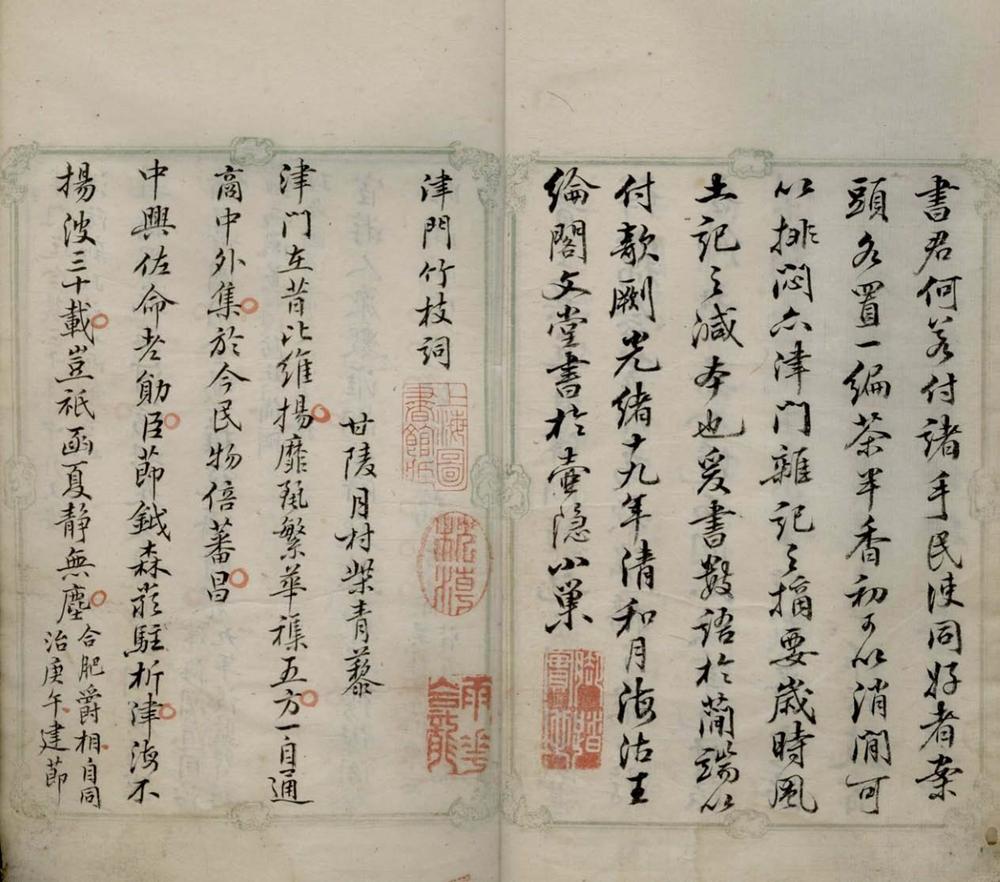 書君何若付諸手民使同好者案
頭各置一編茶半香初可以消閒可
以排悶亦津门雜記之摘要歲時風
土記之減本也爰書數語於簡端以
付歆劂光緒十九年清和月海沽王
綸閣文堂書於壷隐小巢
津門竹枝詞
上海圖書館藏
甘陵月村柴青藜
津门在昔比維揚靡麗繁華集五方一自通
商中外集於今民物倍蕃昌
中興佐命老勛臣節鉞森严駐析津海不
揚波三十載豈祇函夏靜無塵合肥爵相自同
治庚午建節